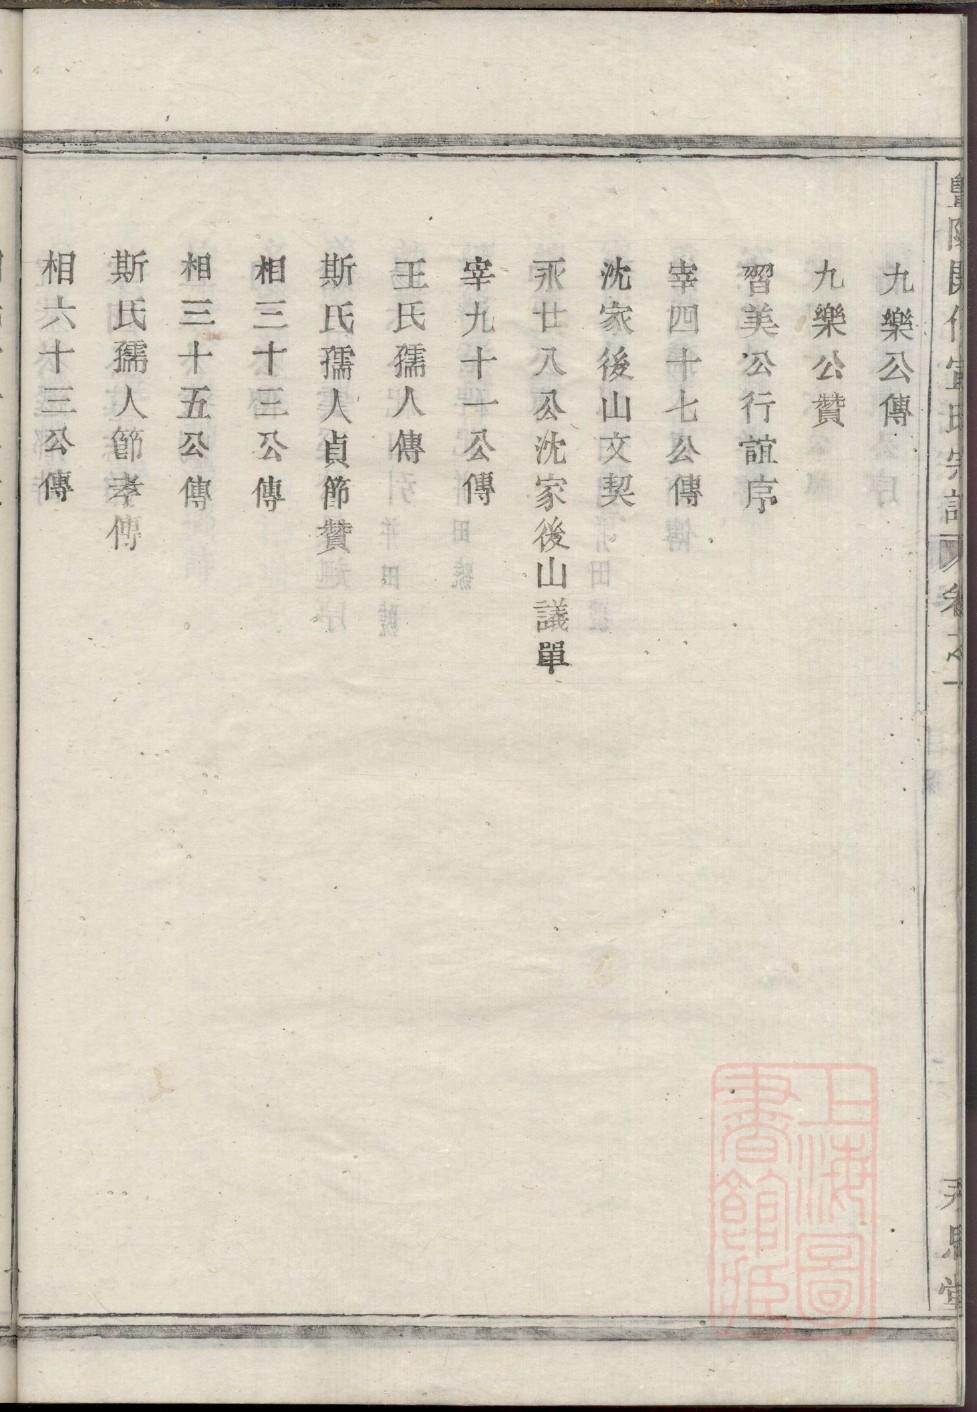 九樂公傳
九樂公贊
習美公行誼序
宰四十七公傳
沈家後山文契
永廿八公沈家後山議單
宰九十一公傳
王氏孺人傳
斯氏孺人貞節贊
相三十三公傳
相三十五公傳
斯氏孺人節孝傳
相六十三公傳
宣氏宗譜 卷之一
永思堂
上海圖書館藏